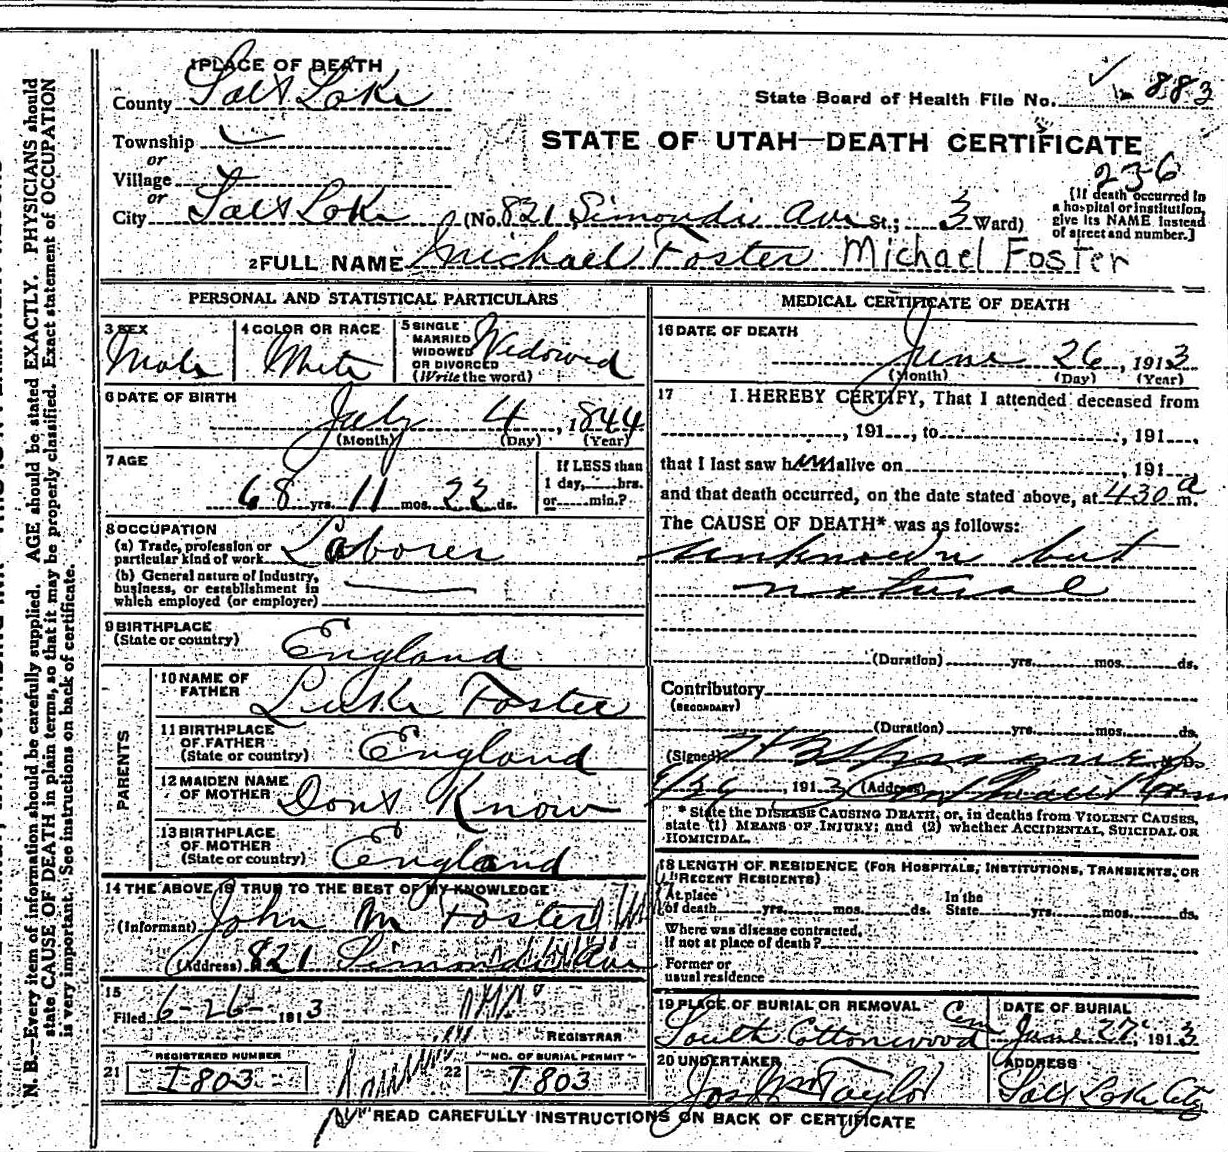 1 PLACE OF DEATH
County Salt Lake
State Board of Health File No. 883
Township
or
STATE OF UTAH—DEATH CERTIFICATE
Village
or
236
City Salt Lake (No. 821 Simondi Ave St.; 3 Ward)
[If death occurred in a hospital or institution, give its NAME instead of street and number.]
2 FULL NAME Michael Foster Michael Foster
PERSONAL AND STATISTICAL PARTICULARS
3 SEX
Male
4 COLOR OR RACE
White
5 SINGLE
MARRIED
WIDOWED
OR DIVORCED
(Write the word)
Widowed
6 DATE OF BIRTH
July 4, 1844
(Month) (Day) (Year)
7 AGE
68 yrs. 11 mos. 22 ds.
If LESS than
1 day, hrs.
or min.?
8 OCCUPATION
(a) Trade, profession or
particular kind of work Laborer
(b) General nature of industry,
business, or establishment in
which employed (or employer)
9 BIRTHPLACE
(State or country) England
PARENTS
10 NAME OF
FATHER Luke Foster
11 BIRTHPLACE
OF FATHER
(State or country) England
12 MAIDEN NAME
OF MOTHER Dont Know
13 BIRTHPLACE
OF MOTHER
(State or country) England
14 THE ABOVE IS TRUE TO THE BEST OF MY KNOWLEDGE
(Informant) John M Foster
(Address) 821 Simondi Ave
15
Filed 6-26- 1913
REGISTRAR
21 REGISTERED NUMBER
I803
22 NO. OF BURIAL PERMIT
I803
MEDICAL CERTIFICATE OF DEATH
16 DATE OF DEATH
June 26, 1913
(Month) (Day) (Year)
17 I HEREBY CERTIFY, That I attended deceased from
, 191 , to , 191 ,
that I last saw him alive on , 191
and that death occurred, on the date stated above, at 430 a m.
The CAUSE OF DEATH* was as follows:
unknown but
natural
(Duration) yrs. mos. ds.
Contributory
(SECONDARY)
(Duration) yrs. mos. ds.
(Signed) M. D.
1913 (Address)
* State the DISEASE CAUSING DEATH, or, in deaths from VIOLENT CAUSES,
state (1) MEANS OF INJURY; and (2) whether ACCIDENTAL, SUICIDAL OR
HOMICIDAL.
18 LENGTH OF RESIDENCE (FOR HOSPITALS, INSTITUTIONS, TRANSIENTS, OR
RECENT RESIDENTS)
At place
of death yrs. mos. ds.
In the
State yrs. mos. ds.
Where was disease contracted,
if not at place of death?
Former or
usual residence
19 PLACE OF BURIAL OR REMOVAL
South Cottonwood Cm
DATE OF BURIAL
June 27, 1913
20 UNDERTAKER
Jos Wm Taylor
ADDRESS
Salt Lake City
READ CAREFULLY INSTRUCTIONS ON BACK OF CERTIFICATE
N. B.—Every item of information should be carefully supplied. AGE should be stated EXACTLY. PHYSICIANS should
state CAUSE OF DEATH in plain terms, so that it may be properly classified. Exact statement of OCCUPATION
is very important. See instructions on back of certificate.